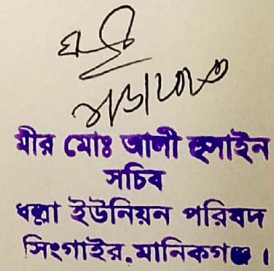 মীর মোঃ আলী হুসাইন
সচিব
ধল্লা ইউনিয়ন পরিষদ
সিংগাইর, মানিকগঞ্জ।